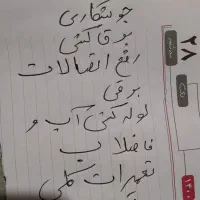 جوشکاری
برق کشی
رفع اتصالات
برقی
لوله کشی آب و
فاضلاب
تعمیرات کلی
۲۸